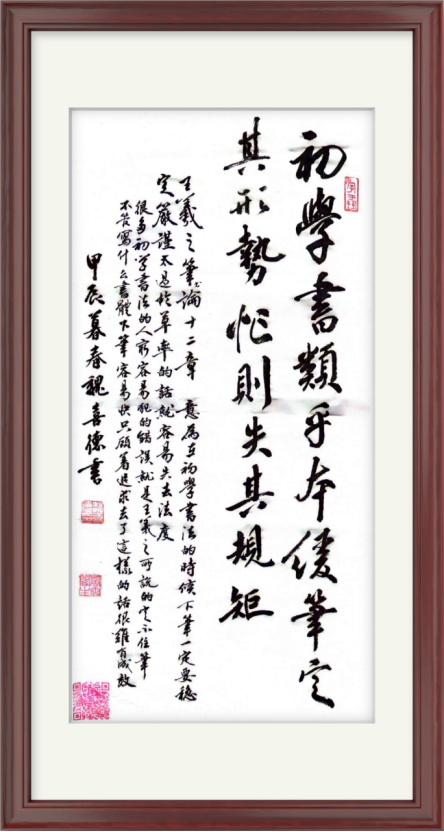 初學書類乎本緩筆定
其形勢忙則失其規矩
王羲之筆論十二章 意為在初學書法的時候下筆一定要穩
定嚴謹太過於草率的話就容易失去法度
很多初學書法的人最容易犯的錯誤就是王羲之所說的定不住筆
不管寫什么書體下筆容易快只顧着追求去了這樣的話很難有成效
甲辰暮春魏喜德書